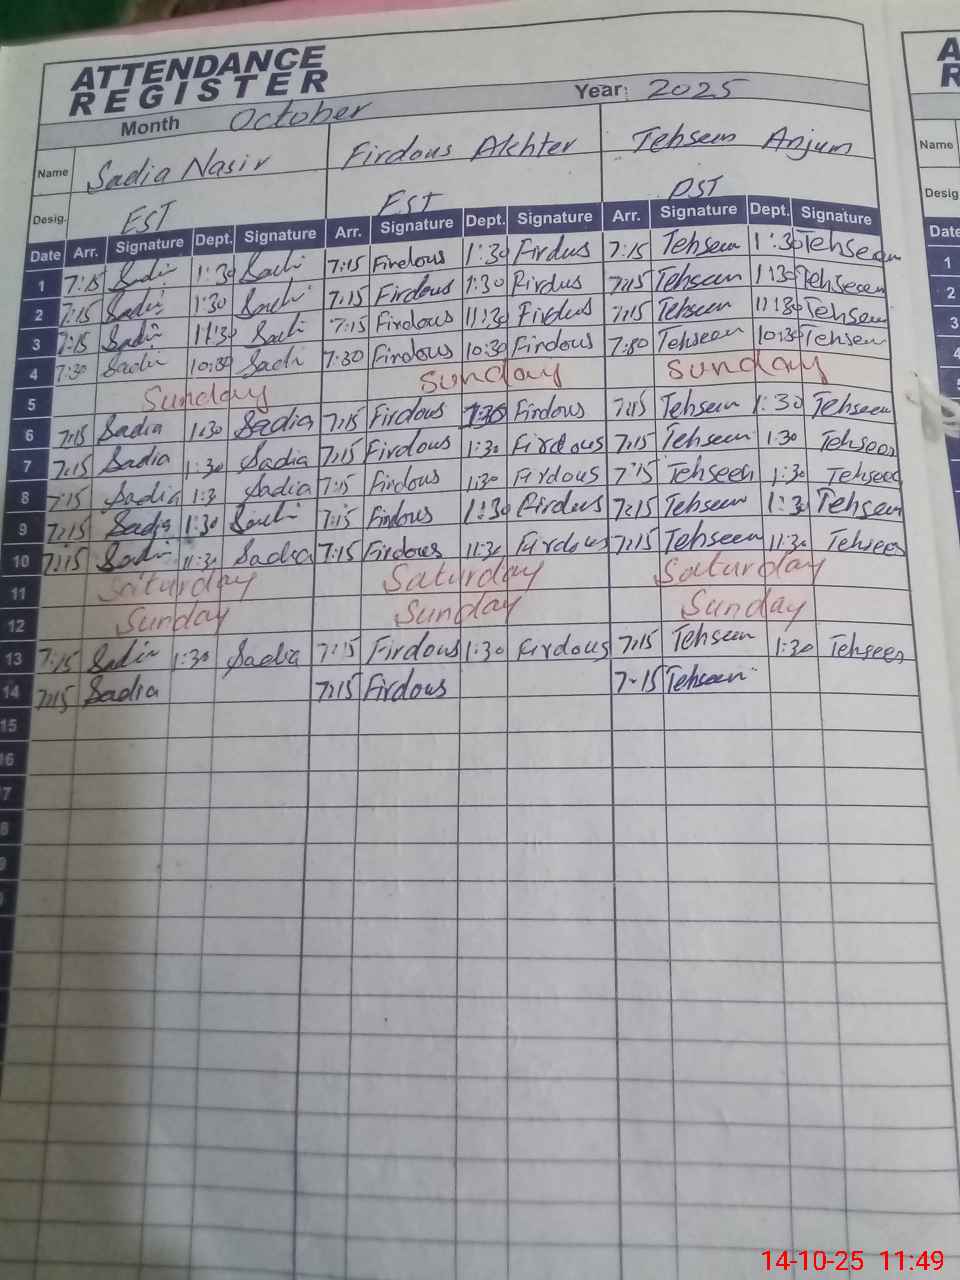 ATTENDANCE
REGISTER
Month October Year: 2025
Name Sadia Nasir Firdous Akhter Tehseen Anjum
Desig. EST EST DST
Date Arr. Signature Dept. Signature Arr. Signature Dept. Signature Arr. Signature Dept. Signature
1 7:15 Sadi 1:30 Sadi 7:15 Firdous 1:30 Firdus 7:15 Tehseen 1:30 Tehseen
2 7:15 Sadi 1:30 Sadi 7:15 Firdous 1:30 Firdus 7:15 Tehseen 1:30 Tehseen
3 7:15 Sadi 11:30 Sadi 7:15 Firdous 11:30 Firdus 7:15 Tehseen 11:30 Tehseen
4 7:30 Sadi 10:30 Sadi 7:30 Firdous 10:30 Firdous 7:30 Tehseen 10:30 Tehseen
5 Sunday Sunday Sunday
6 7:15 Sadia 1:30 Sadia 7:15 Firdous 1:30 Firdous 7:15 Tehseen 1:30 Tehseen
7 7:15 Sadia 1:30 Sadia 7:15 Firdous 1:30 Firdous 7:15 Tehseen 1:30 Tehseen
8 7:15 Sadia 1:3 Sadia 7:15 Firdous 1:30 Firdous 7:15 Tehseen 1:30 Tehseen
9 7:15 Sadia 1:30 Sadi 7:15 Firdous 1:30 Firdous 7:15 Tehseen 1:30 Tehseen
10 7:15 Sadi 11:30 Sadia 7:15 Firdous 11:30 Firdous 7:15 Tehseen 11:30 Tehseen
11 Saturday Saturday Saturday
12 Sunday Sunday Sunday
13 7:15 Sadia 1:30 Sadia 7:15 Firdous 1:30 Firdous 7:15 Tehseen 1:30 Tehseen
14 7:15 Sadia 7:15 Firdous 7:15 Tehseen
15
16
7
8
9
A
R
Name
Desig
Date
1
2
3
4
5
14-10-25 11:49